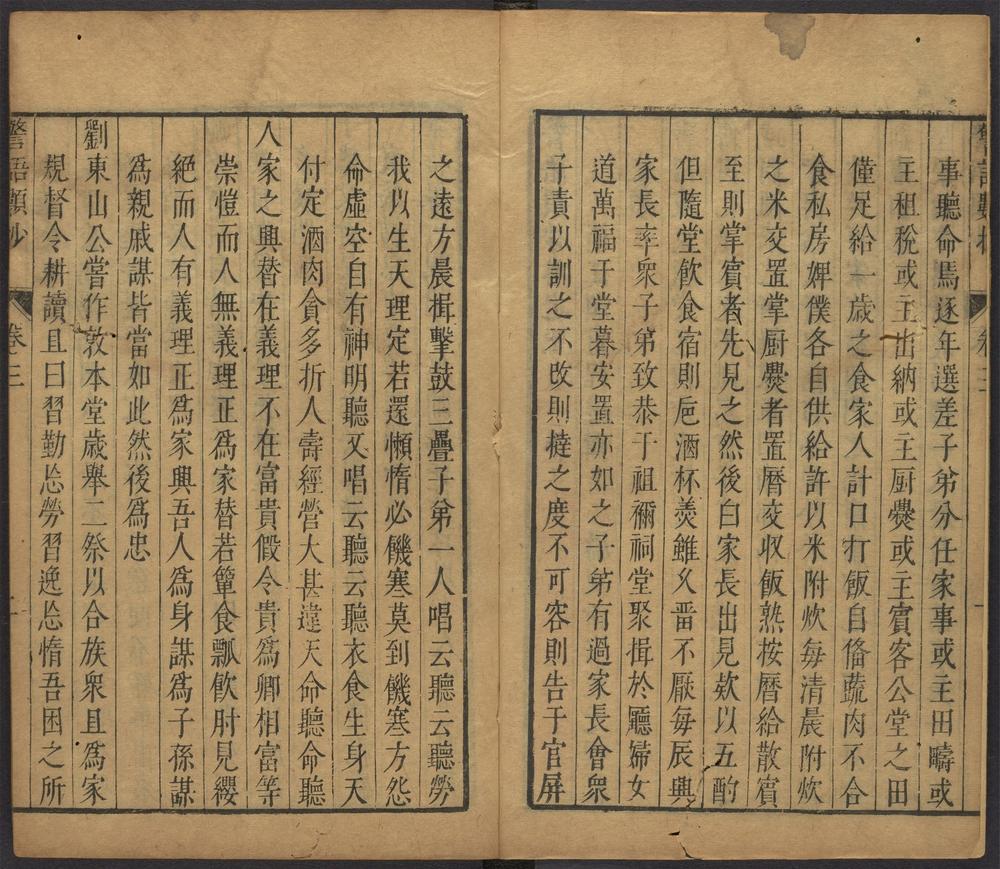 事聽命焉逐年選差子弟分任家事或主田疇或
主租稅或主出納或主厨㸑或主賓客公堂之田
僅足給一歲之食家人計口打飯自俻蔬肉不合
食私房婢僕各自供給許以米附炊每清晨附炊
之米交置掌厨㸑者置曆交收飯熟按曆給散賓
至則掌賓者先見之然後白家長出見欵以五酌
但隨堂飲食宿則巵酒杯羮雖久畱不厭每辰興
家長率衆子弟致恭于祖禰祠堂聚揖於廳婦女
道萬福于堂暮安置亦如之子弟有過家長會衆
子責以訓之不改則撻之度不可容則告于官屏
之逺方晨揖擊鼓三疊子弟一人唱云聽云聽勞
我以生天理定若還懶惰必饑寒莫到饑寒方怨
命虛空自有神明聽又唱云聽云聽衣食生身天
付定酒肉貪多折人壽經營大甚違天命聽命聽
人家之興替在義理不在富貴假令貴爲卿相富等
崇愷而人無義理正爲家替若簞食瓢飲肘見纓
絶而人有義理正爲家興吾人爲身謀爲子孫謀
爲親戚謀皆當如此然後爲忠
劉東山公嘗作敦本堂歲舉二祭以合族衆且爲家
規督令耕讀且曰習勤忘勞習逸忘惰吾困之所
警語類抄 卷之三